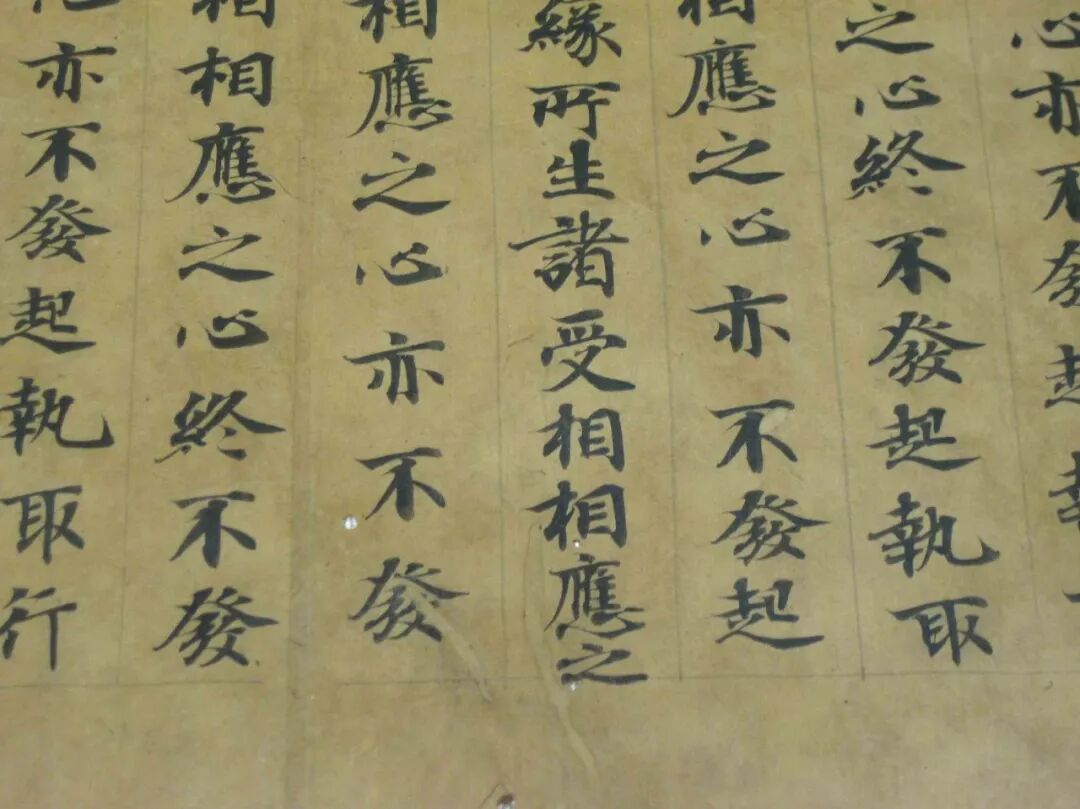 心亦不發起執
之心終不發起執取
相應之心亦不發起
緣所生諸受相相應之
相應之心亦不發
相相應之心終不發
亦不發起執取行